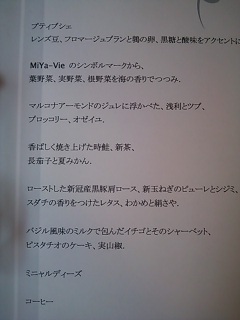 プティブシェ
レンズ豆、フロマージュブランと鶏の卵、黒糖と酸味をアクセントに
MiYa-Vie のシンボルマークから、
葉野菜、実野菜、根野菜を海の香りでつつみ.
マルコナアーモンドのジュレに浮かべた、浅利とツブ、
ブロッコリー、オゼイユ.
香ばしく焼き上げた時鮭、新茶、
長茄子と夏みかん.
ローストした新冠産黒豚肩ロース、新玉ねぎのピューレとシジミ、
スダチの香りをつけたレタス、わかめと絹さや.
バジル風味のミルクで包んだイチゴとそのシャーベット、
ピスタチオのケーキ、実山椒.
ミニャルディーズ
コーヒー